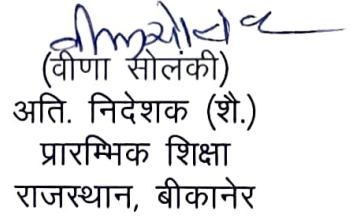 (वीणा सोलंकी)
अति. निदेशक (शै.)
प्रारम्भिक शिक्षा
राजस्थान, बीकानेर